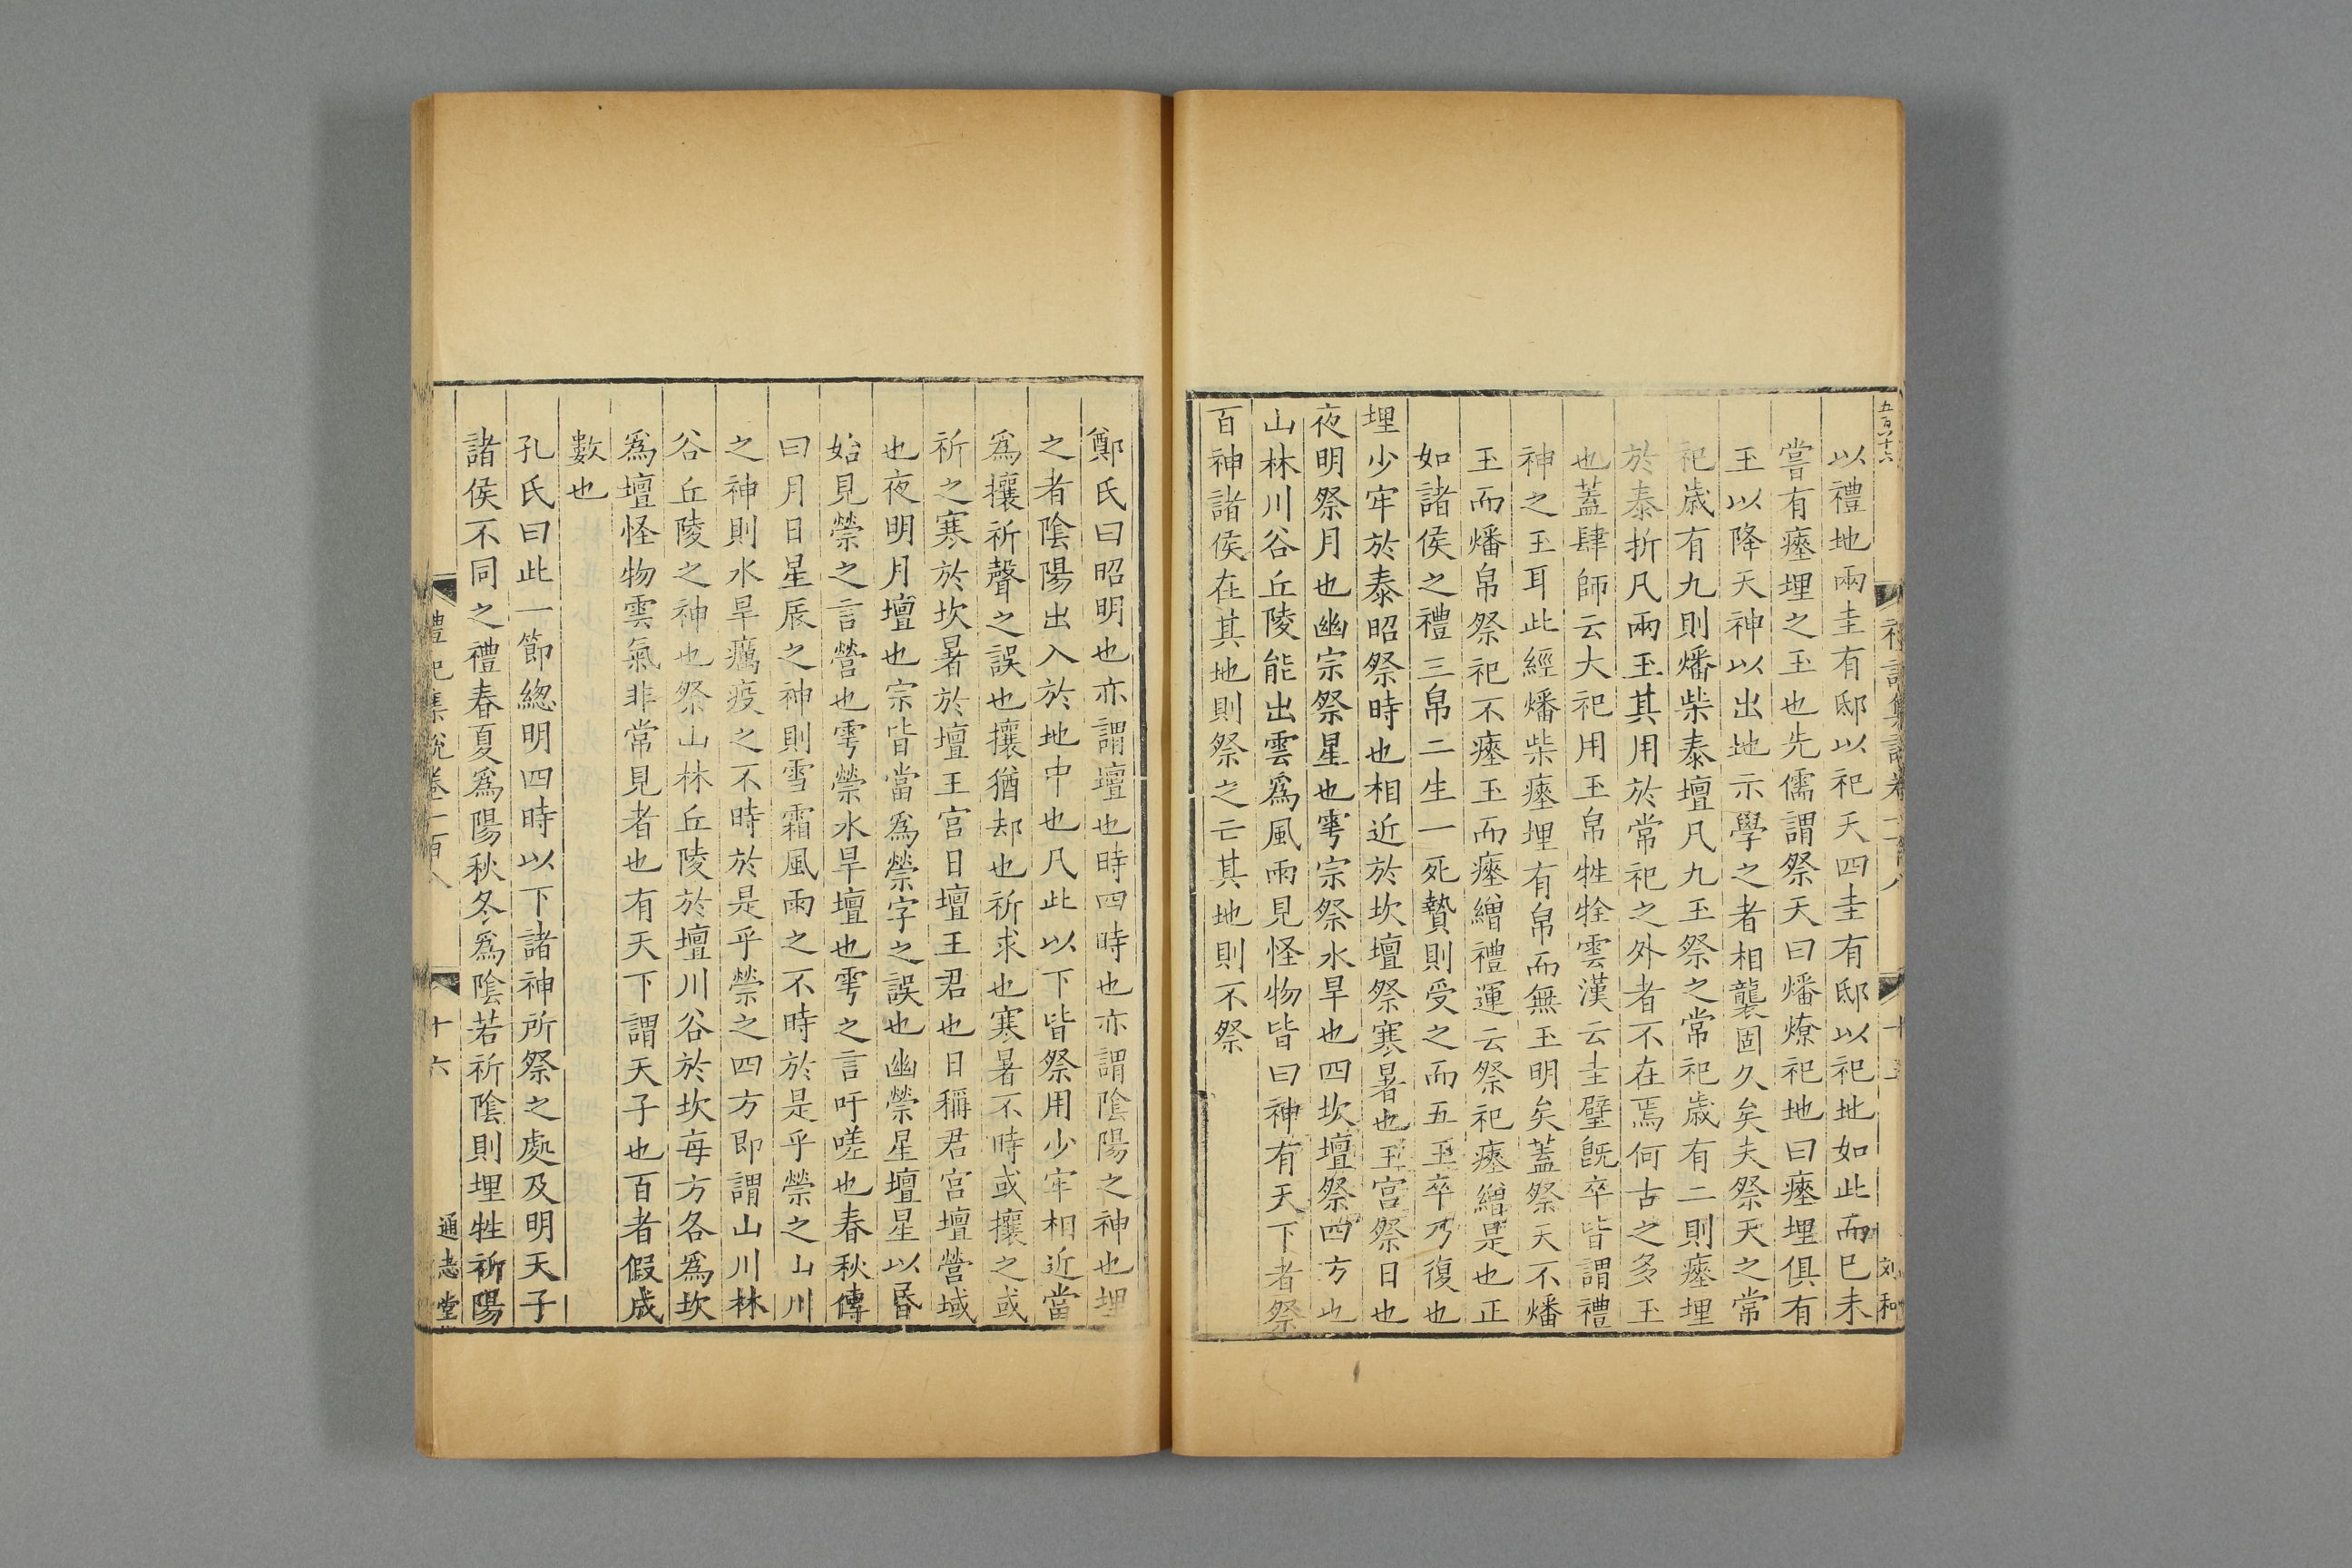 五百六十六
禮記集說卷一百八
十五
刘和
以禮地兩圭有邸以祀天四圭有邸以祀地如此而已未
嘗有瘞埋之玉也先儒謂祭天曰燔燎祀地曰瘞埋俱有
玉以降天神以出地示學之者相襲固久矣夫祭天之常
祀歲有九則燔柴泰壇凡九玉祭之常祀歲有二則瘞埋
於泰折凡兩玉其用於常祀之外者不在焉何古之多玉
也蓋肆師云大祀用玉帛牲牷雲漢云圭璧旣卒皆謂禮
神之玉耳此經燔柴瘞埋有帛而無玉明矣蓋祭天不燔
玉而燔帛祭祀不瘞玉而瘞繒禮運云祭祀瘞繒是也正
如諸侯之禮三帛二生一死贄則受之而五玉卒乃復也
埋少牢於泰昭祭時也相近於坎壇祭寒暑也王宮祭日也
夜明祭月也幽宗祭星也雩宗祭水旱也四坎壇祭四方也
山林川谷丘陵能出雲爲風雨見怪物皆曰神有天下者祭
百神諸侯在其地則祭之亡其地則不祭
鄭氏曰昭明也亦謂壇也時四時也亦謂陰陽之神也埋
之者陰陽出入於地中也凡此以下皆祭用少牢相近當
爲攘祈聲之誤也攘猶却也祈求也寒暑不時或攘之或
祈之寒於坎暑於壇王宮日壇王君也日稱君宮壇營域
也夜明月壇也宗皆當爲禜字之誤也幽禜星壇星以昬
始見禜之言營也雩禜水旱壇也雩之言吁嗟也春秋傳
曰月日星辰之神則雪霜風雨之不時於是乎禜之山川
之神則水旱癘疫之不時於是乎禜之四方即謂山川林
谷丘陵之神也祭山林丘陵於壇川谷於坎每方各爲坎
爲壇怪物雲氣非常見者也有天下謂天子也百者假成
數也
孔氏曰此一節緫明四時以下諸神所祭之處及明天子
諸侯不同之禮春夏爲陽秋冬爲陰若祈陰則埋牲祈陽
禮記集說卷一百八
十六
通志堂